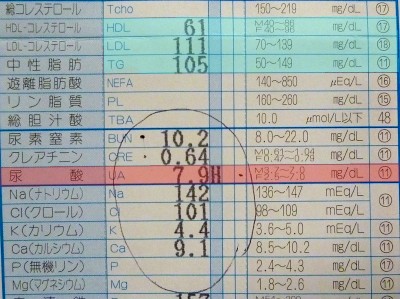 総コレステロール Tcho 150~219 mg/dL ⑰
HDL-コレステロール HDL 61 mg/dL ⑰
LDL-コレステロール LDL 111 70~139 mg/dL ⑱
中性脂肪 TG 105 50~149 mg/dL ⑪
遊離脂肪酸 NEFA 140~850 μEq/L ⑯
リン脂質 PL 160~260 mg/dL ⑮
総胆汁酸 TBA 10.0 μmol/L以下 48
尿素窒素 BUN 10.2 8.0~22.0 mg/dL ⑪
クレアチニン CRE 0.64 mg/dL ⑪
尿酸 UA 7.9H mg/dL ⑪
Na(ナトリウム) Na 142 136~147 mEq/L
Cl(クロール) Cl 101 98~109 mEq/L ⑪
K(カリウム) K 4.4 3.6~5.0 mEq/L ⑪
Ca(カルシウム) Ca 9.1 8.5~10.2 mg/dL ⑪
P(無機リン) P 2.4~4.3 mg/dL ⑰
Mg(マグネシウム) Mg 1.8~2.6 mg/dL ⑪